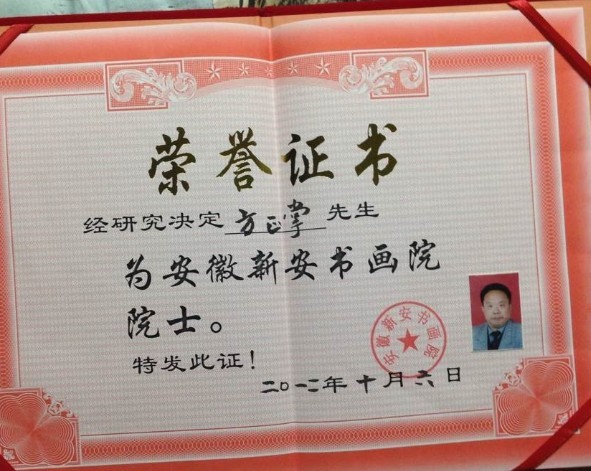 荣誉证书
经研究决定 方正掌 先生
为安徽新安书画院
院士。
特发此证！
安徽新安书画院
二〇一二年十月六日